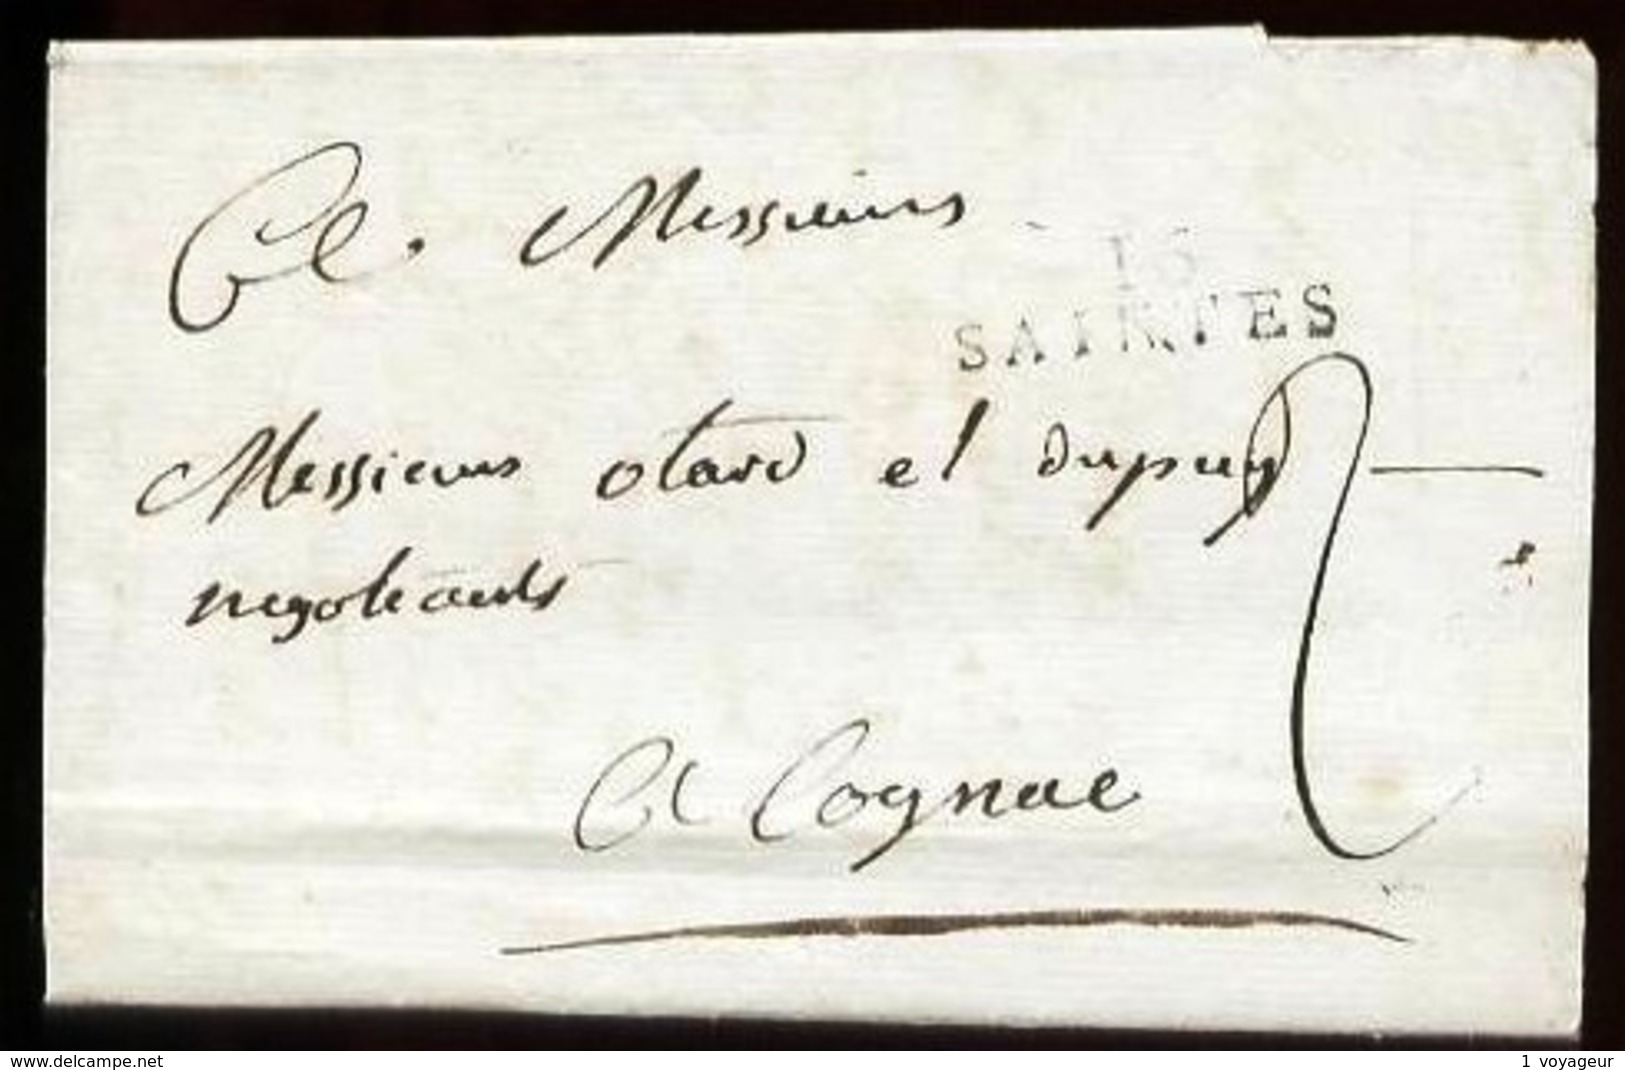 A. Messieurs
16
SAINTES
Messieurs otard et dupuy
negotiants
A Cognac
2
www.delcampe.net
1 voyageur